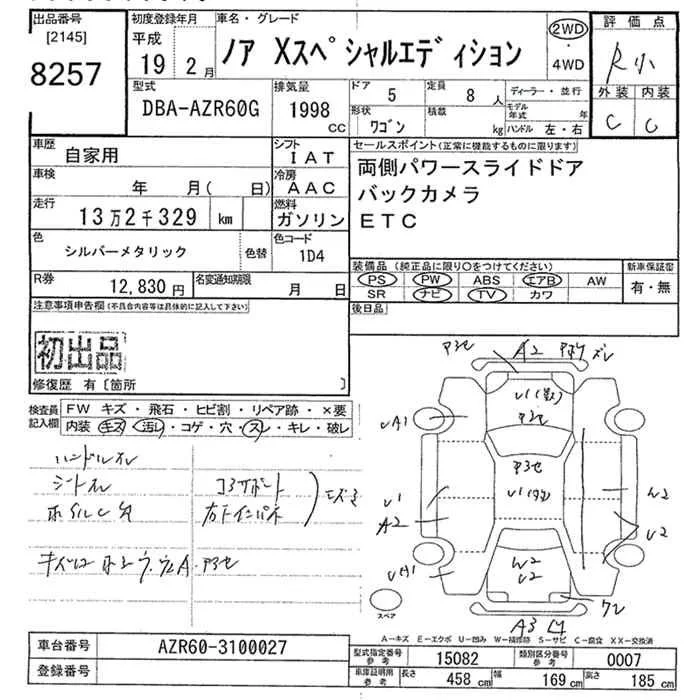 出品番号 初度登録年月 車名・グレード 2WD 評価点
[2145] 平成 ノア Xスペシャルエディション ・ R小
8257 19 2月 4WD 外装 内装
C C
型式 排気量 ドア 5 定員 8人 ディーラー・並行
DBA-AZR60G 1998 CC 形状 ワゴン 積載 kg モデル年式 年
ハンドル 左・右
車歴 自家用 シフト IAT セールスポイント(正常に機能するものに限ります)
車検 年 月( 日) 冷房 AAC 両側パワースライドドア
走行 13万2千329 km 燃料 ガソリン バックカメラ
ETC
色 シルバーメタリック 色替 色コード 1D4
装備品 (純正品に限り○をつけてください) 新車保証書
R券 12,830円 名変通知期限 月 日 PS PW ABS エアB AW 有・無
SR ナビ TV カワ
注意事項申告欄(不具合内容等は具体的に記入して下さい) 後日品
初出品
修復歴 有〔箇所 〕
検査員記入欄 FW キズ・飛石・ヒビ割・リペア跡・×要
内装 キズ・汚レ・コゲ・穴・スレ・キレ・破レ
P3セ A2 ズレ
UA1 P3セ
ハンドルスレ
シートスレ コアサポート
P3セ
U1 A2 W2 U2
UA1 W2 U2
A3
スペア
A-キズ E-エクボ U-凹み W-補修跡 S-サビ C-腐食 XX-交換済
車台番号 AZR60-3100027
型式指定番号 参考 15082 類別区分番号 参考 0007
登録番号
車庫証明用 参考 長さ 458 cm 幅 169 cm 高さ 185 cm